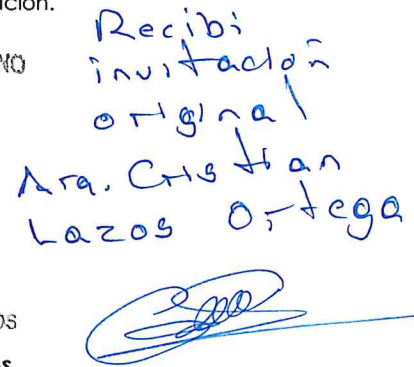 ción.
NO
Recibi
invitación
original
Arq. Cristian
Lazos Ortega
OS
s